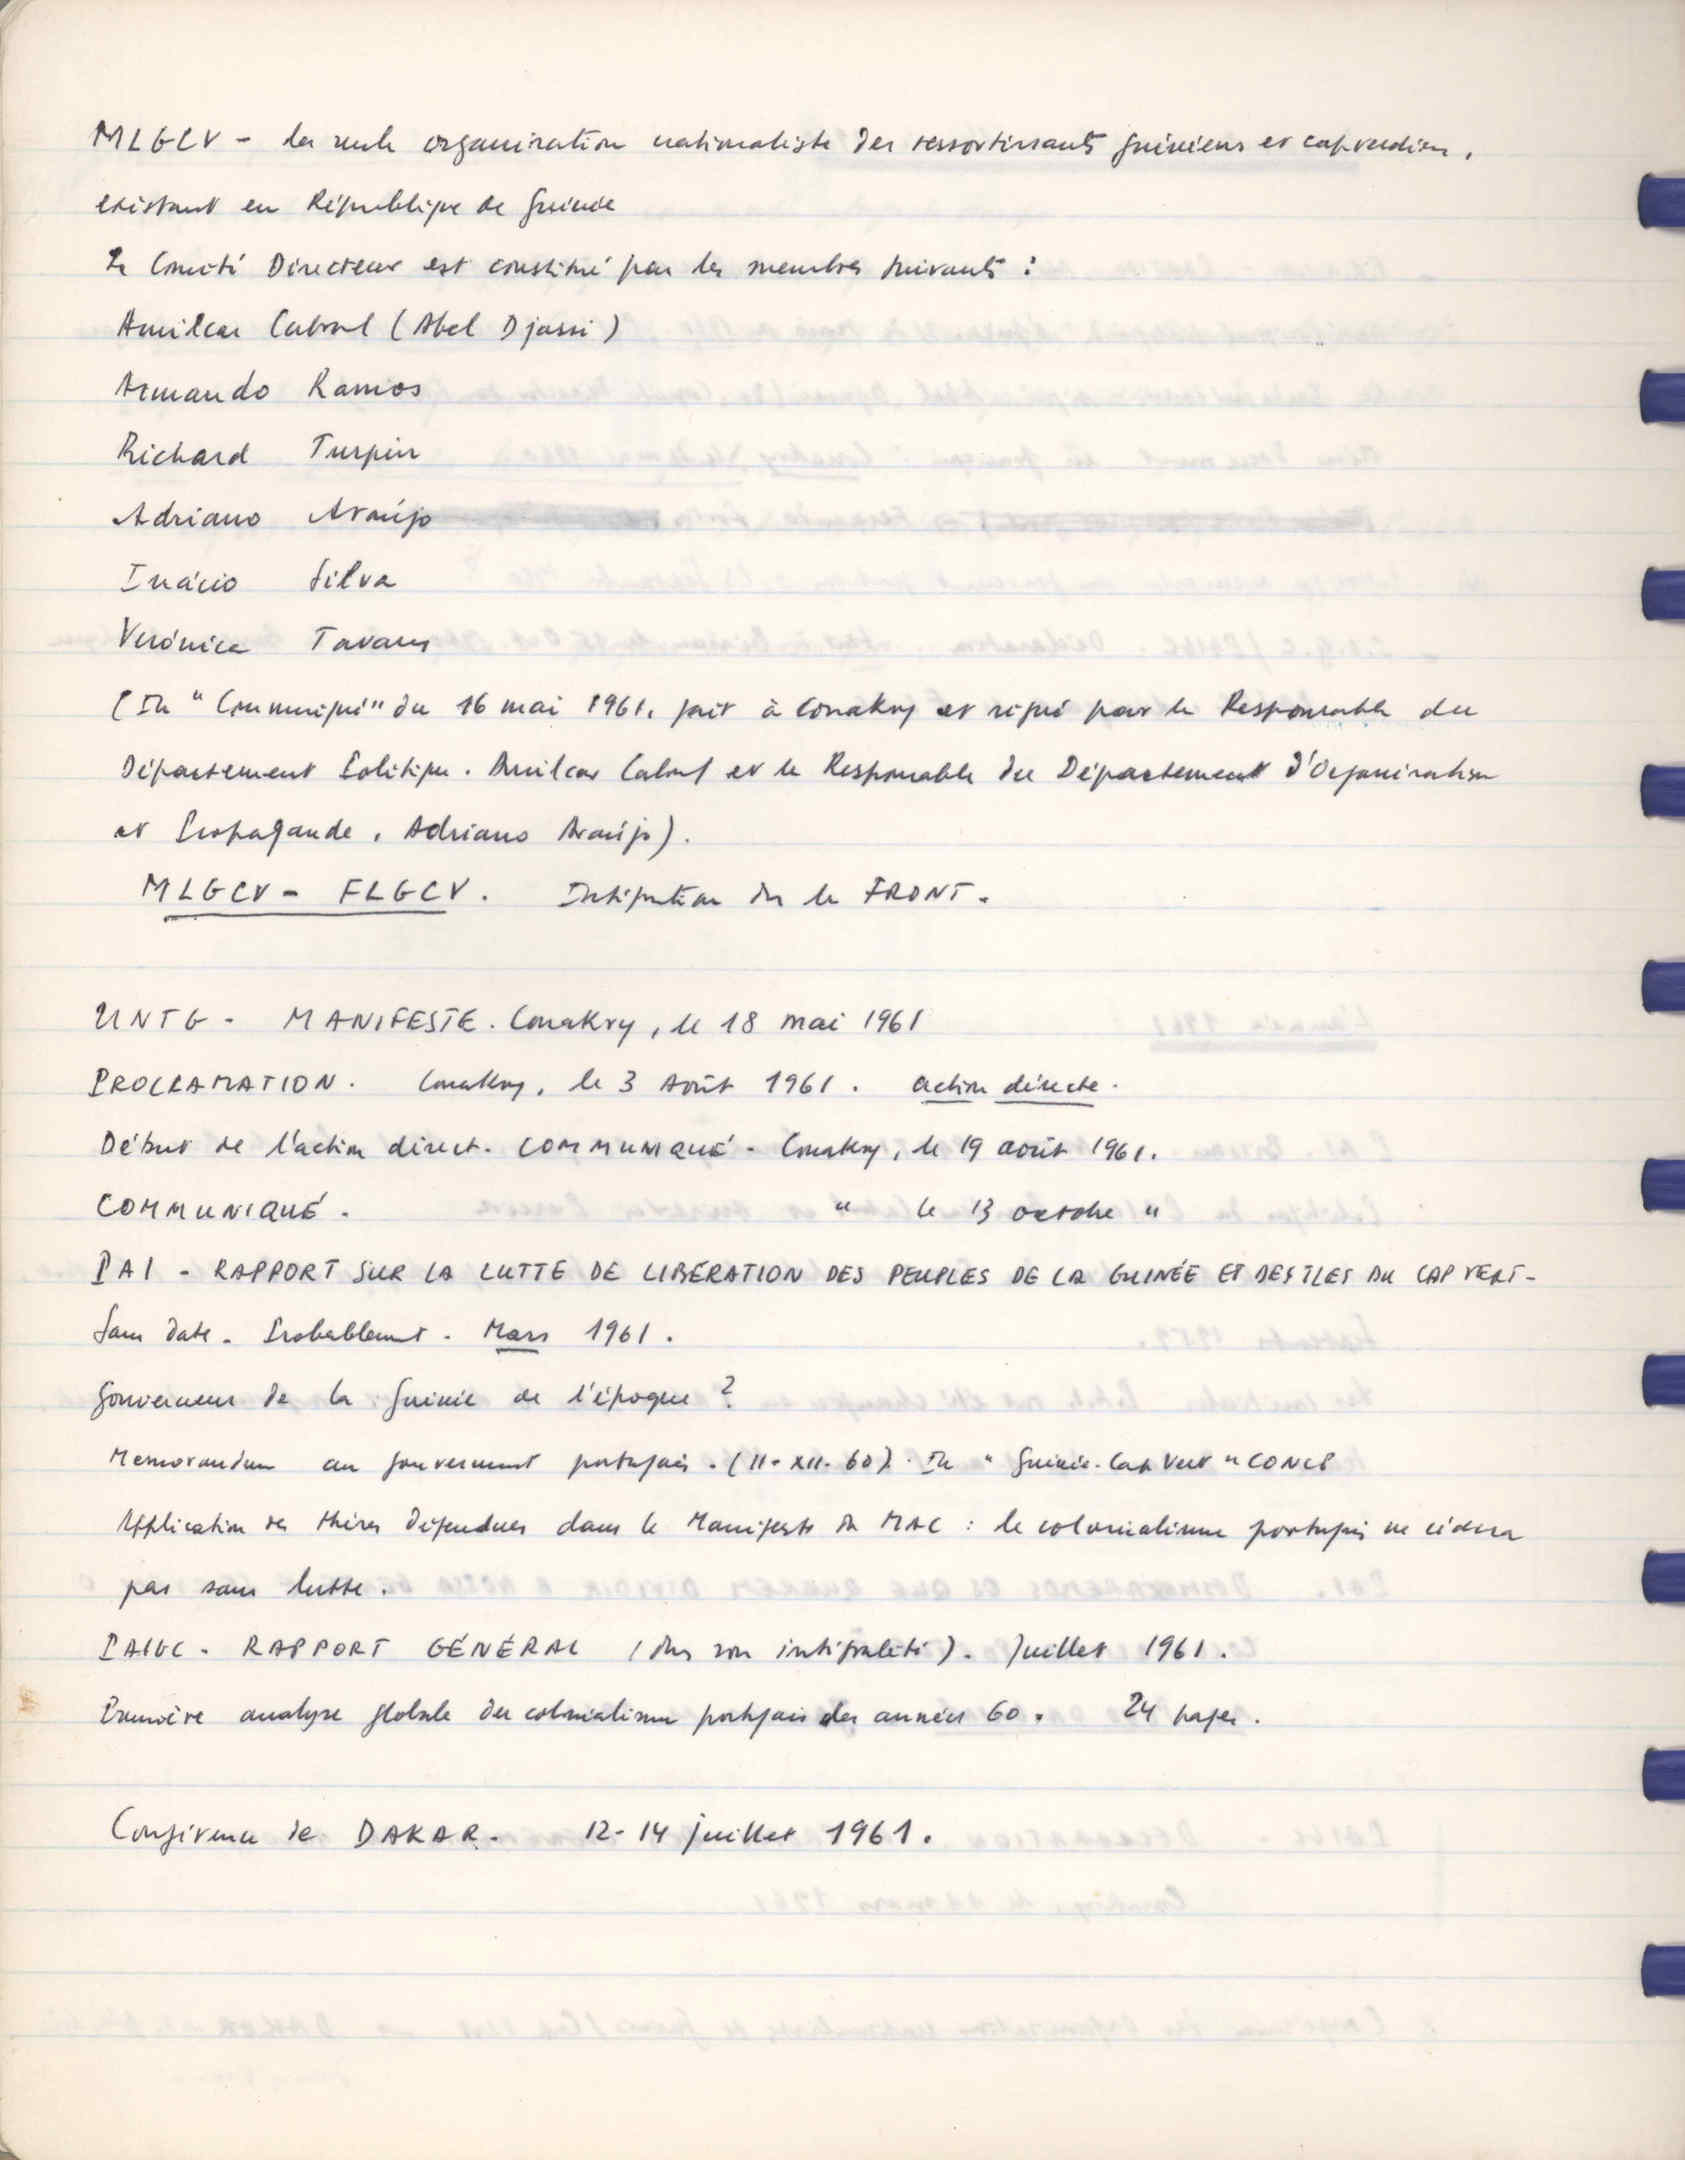 MLGCV - la seule organisation nationaliste des ressortissants guinéens et capverdiens,
existant en République de Guinée
Le Comité Directeur est constitué par les membres suivants :
Amilcar Cabral (Abel Djassi)
Armando Ramos
Richard Turpin
Adriano Araújo
Inácio Silva
Verónica Tavares
(In "Communiqué" du 16 mai 1961, fait à Conakry et signé par le Responsable du
Département Politique. Amilcar Cabral et le Responsable du Département d'Organisation
et Propagande, Adriano Araújo).
MLGCV - FLGCV. Intégration ds le FRONT.
UNTG - MANIFESTE. Conakry, le 18 mai 1961
PROCLAMATION. Conakry, le 3 Août 1961. action directe.
Début de l'action direct. COMMUNIQUÉ - Conakry, le 19 août 1961.
COMMUNIQUÉ. " le 13 octobre "
PAI - RAPPORT SUR LA LUTTE DE LIBÉRATION DES PEUPLES DE LA GUINÉE ET DES ILES DU CAP VERT -
Sans date. Probablement. Mars 1961.
Gouverneur de la Guinée de l'époque ?
Memorandum au gouvernement portugais. (11-XII-60). In "Guinée-Cap Vert" CONCP
Application des thèses défendues dans le Manifeste du MAC : le colonialisme portugais ne cédera
pas sans lutte.
PAIGC - RAPPORT GÉNÉRAL (ds son intégralité). Juillet 1961.
Première analyse globale du colonialisme portugais des années 60. 24 pages.
Conférence de DAKAR. 12-14 juillet 1961.